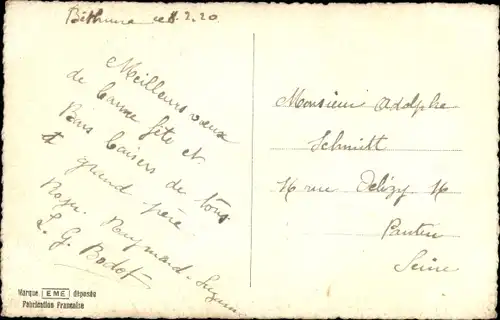 Béthune 2.20
Meilleurs vœux
de bonne fête et
Bons baisers de tous
grand père
Raymond - Suzanne
L. G. Bodot
Monsieur Adolphe
Schmitt
rue Délizy
Pantin
Seine
Marque EME déposée
Fabrication Française